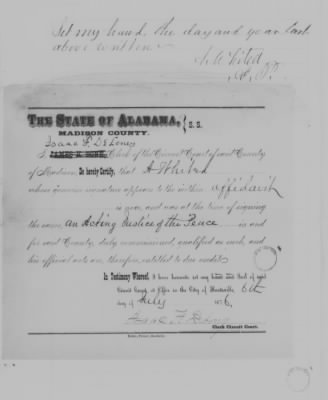 Set my hand, the day and year last
above written
THE STATE OF ALABAMA, } S. S.
MADISON COUNTY.
Isaac F. DeLoney
I, Clerk of the Circuit Court of said County
of Madison, Do hereby Certify, that A Whited
whose genuine signature appears to the within affidavit
is now, and was at the time of signing
the same, an Acting Justice of the Peace in and
for said County, duly commissioned, qualified as such, and
his official acts are, therefore, entitled to due credit.
In Testimony Whereof, I have hereunto set my hand and Seal of said
Circuit Court, at Office in the City of Huntsville, 6th
day of July 1876,
Isaac F. DeLoney
Clerk Circuit Court.